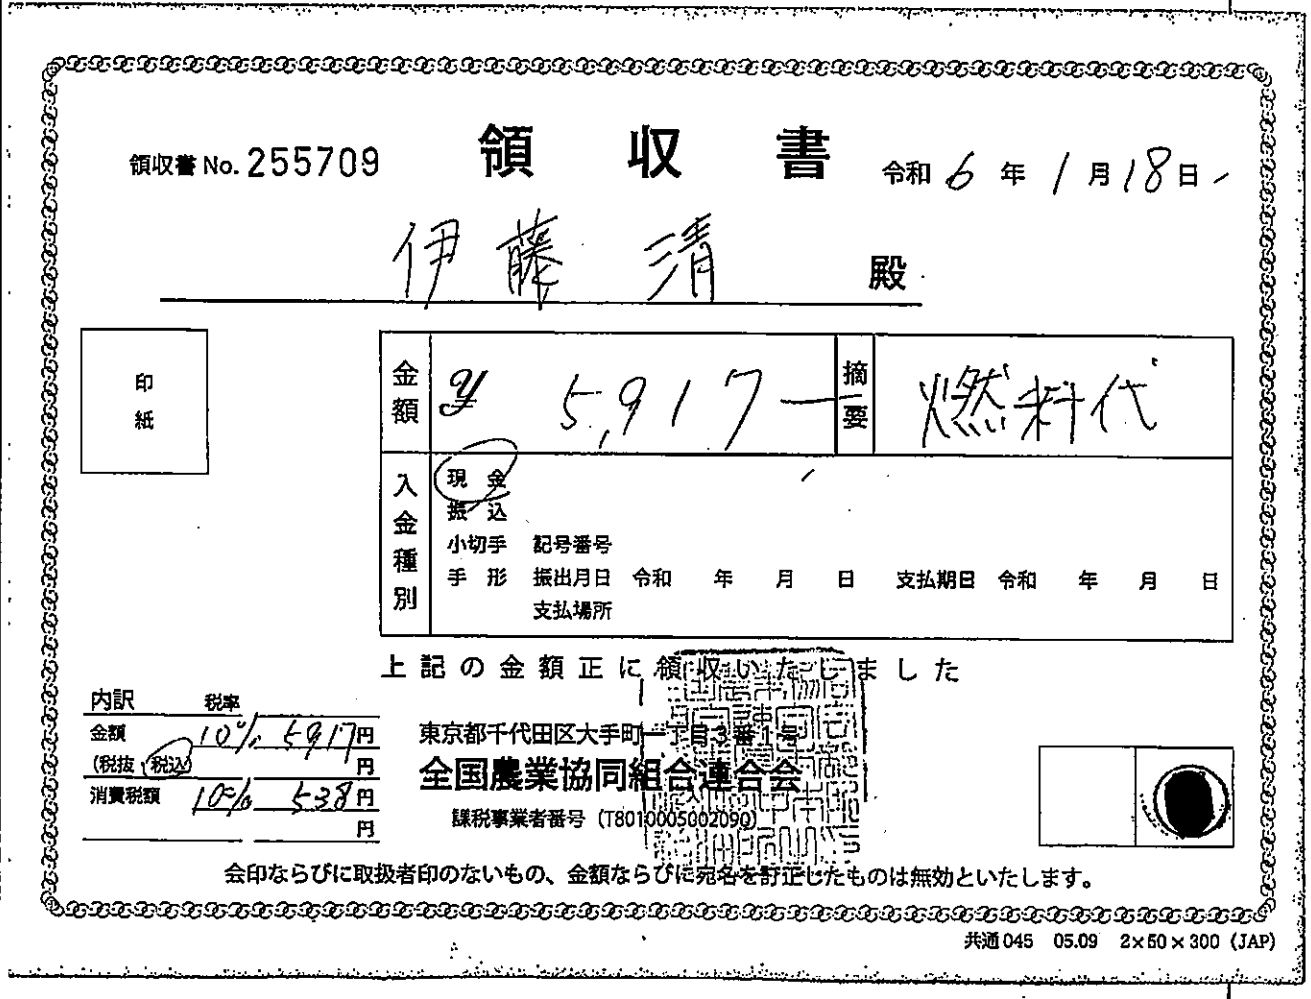 領収書 No. 255709
領収書
令和 6 年 1 月 18 日
伊藤 清 殿
印紙
金額 ¥ 5,917― 摘要 燃料代
入金種別
現金
振込
小切手 記号番号
手形 振出月日 令和 年 月 日 支払期日 令和 年 月 日
支払場所
上記の金額正に領収いたしました
内訳 税率
金額 10% 5917円
(税抜 税込) 円
消費税額 10% 538円
円
東京都千代田区大手町一丁目3番1号
全国農業協同組合連合会
課税事業者番号 (T8010005002090)
会印ならびに取扱者印のないもの、金額ならびに宛名を訂正したものは無効といたします。
共通045 05.09 2×50×300 (JAP)